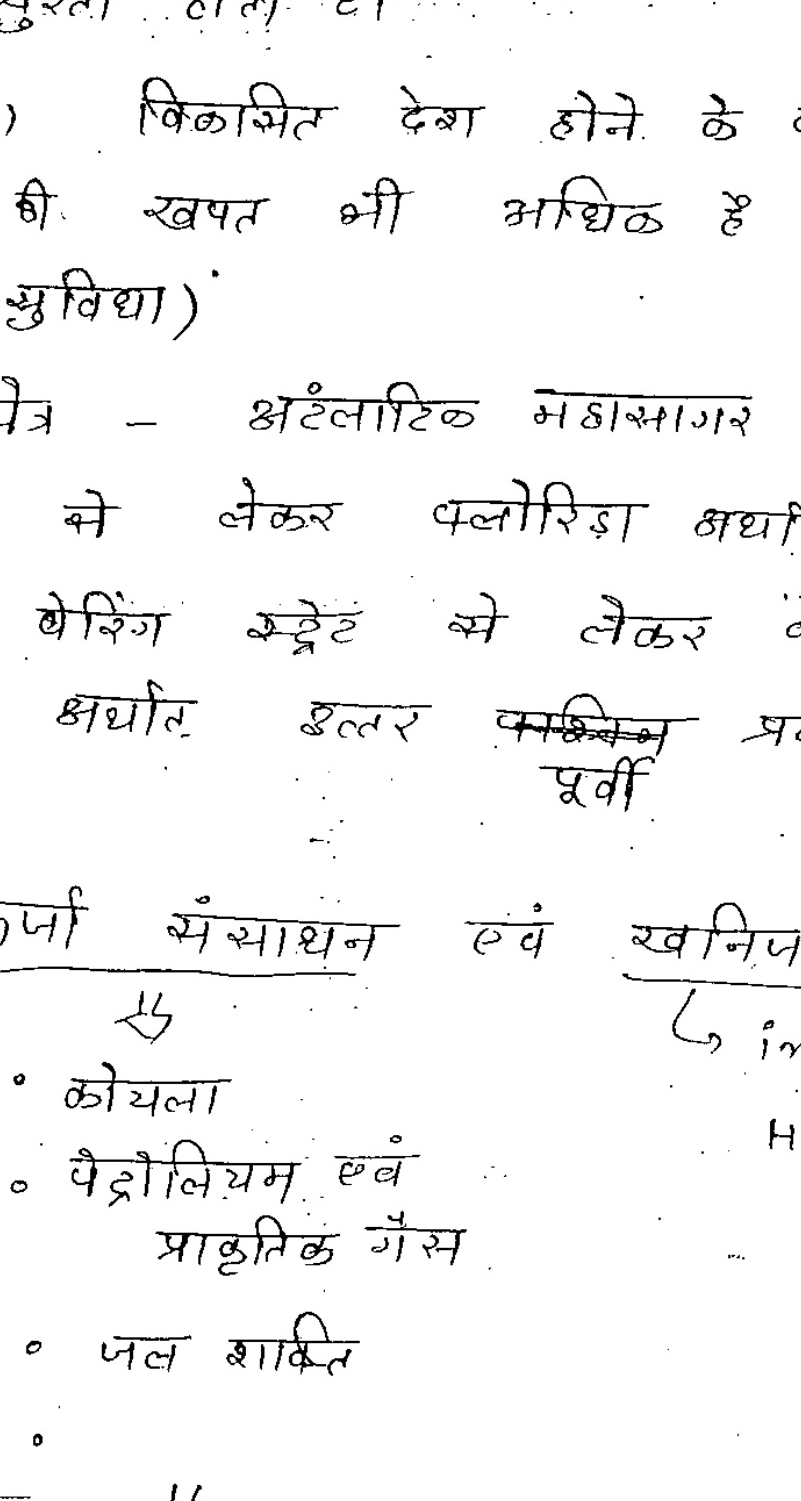 ) विकसित देश होने के
की खपत भी अधिक है
सुविधा)
- अटंलाटिक महासागर
से लेकर फ्लोरिडा
बेरिंग स्ट्रेट से लेकर
अर्थात् उत्तर पश्चिम
पूर्वी
संसाधन एवं खनिज
• कोयला
• पेट्रोलियम एवं
प्राकृतिक गैस
• जल शक्ति
•